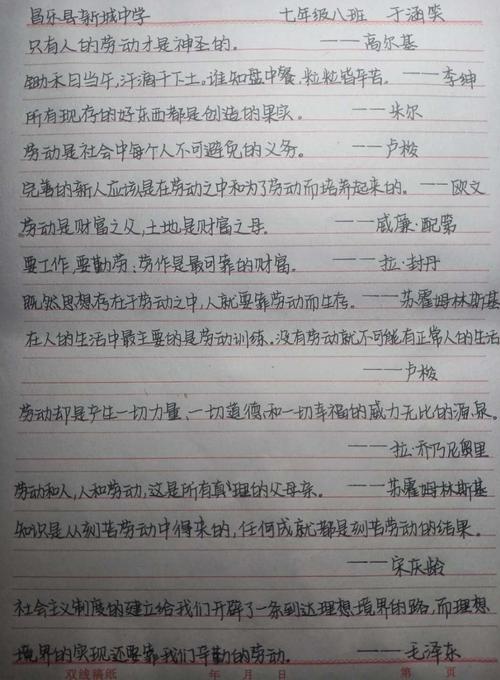 昌乐县新城中学 七年级八班 于涵笑
只有人的劳动才是神圣的。 ——高尔基
锄禾日当午,汗滴禾下土。谁知盘中餐,粒粒皆辛苦。 ——李绅
所有现存的好东西都是创造的果实。 ——米尔
劳动是社会中每个人不可避免的义务。 ——卢梭
完善的新人应该是在劳动之中和为了劳动而培养起来的。——欧文
劳动是财富之父,土地是财富之母。 ——威廉·配第
要工作,要勤劳:劳作是最可靠的财富。 ——拉·封丹
既然思想存在于劳动之中,人就要靠劳动而生存。——苏霍姆林斯基
在人的生活中最主要的是劳动训练。没有劳动就不可能有正常人的生活
——卢梭
劳动却是产生一切力量、一切道德和一切幸福的威力无比的源泉。
——拉·乔乃尼奥里
劳动和人,人和劳动,这是所有真理的父母亲。 ——苏霍姆林斯基
知识是从刻苦劳动中得来的,任何成就都是刻苦劳动的结果。
——宋庆龄
社会主义制度的建立给我们开辟了一条到达理想境界的路,而理想
境界的实现还要靠我们辛勤的劳动。 ——毛泽东
双线稿纸 年 月 日 第 页